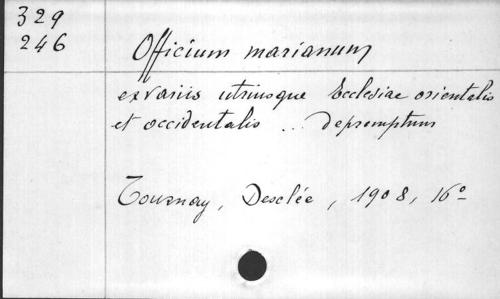 329
246
Officium marianum
ex variis utriusque Ecclesiae orientalis
et occidentalis ... depromptum
Tournay, Desclée, 1908, 16º